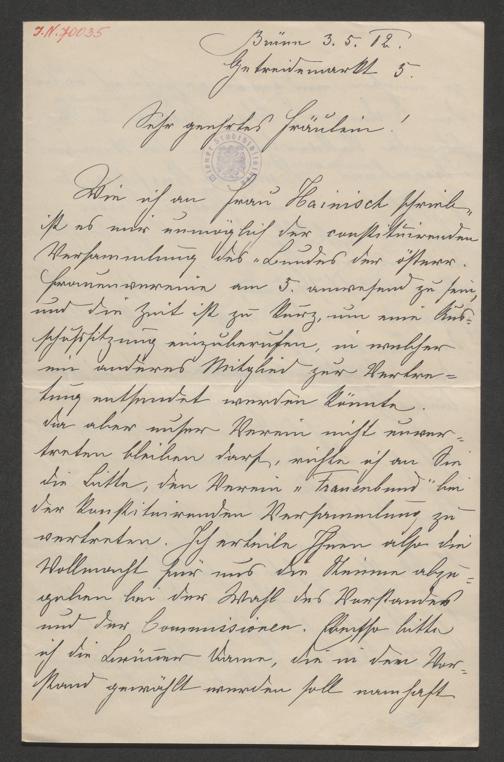 J.N. 70035
Brünn 3. 5. 12.
Getreidemarkt 5.
Sehr geehrtes Fräulein!
Wiener Stadtbibliothek
Wie ich an Frau Hainisch schrieb,
ist es mir unmöglich der constituirenden
Versammlung des „Bundes der österr.
Frauenvereine am 5. anwesend zu sein,
und die Zeit ist zu kurz, um eine Aus-
schußsitzung einzuberufen, in welcher
ein anderes Mitglied zur Vertre-
tung entsendet werden könnte.
Da aber unser Verein nicht unver-
treten bleiben darf, richte ich an Sie
die Bitte, den Verein „Frauenbund" bei
der konstituirenden Versammlung zu
vertreten. Ich erteile Ihnen also die
Vollmacht für uns die Stimme abzu-
geben bei der Wahl des Vorstandes
und der Commissionen. Ebenso bitte
ich die Brünner Dame, die in den Vor-
stand gewählt werden soll namhaft